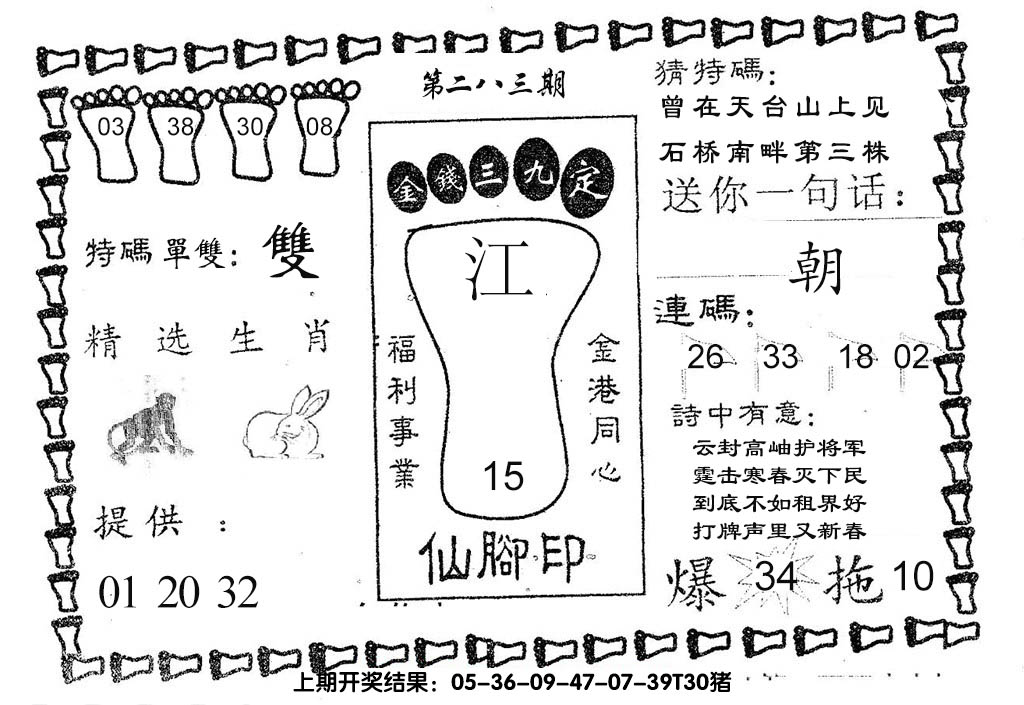 第二八三期
03 38 30 08
特碼單雙：雙
精选生肖
提供：
01 20 32
金錢三九定
江
福利事業
金港同心
15
仙腳印
猜特碼：
曾在天台山上见
石桥南畔第三株
送你一句话：
朝
連碼：
26 33 18 02
詩中有意：
云封高岫护将军
霆击寒春灭下民
到底不如租界好
打牌声里又新春
爆 34 拖 10
上期开奖结果：05-36-09-47-07-39T30猪